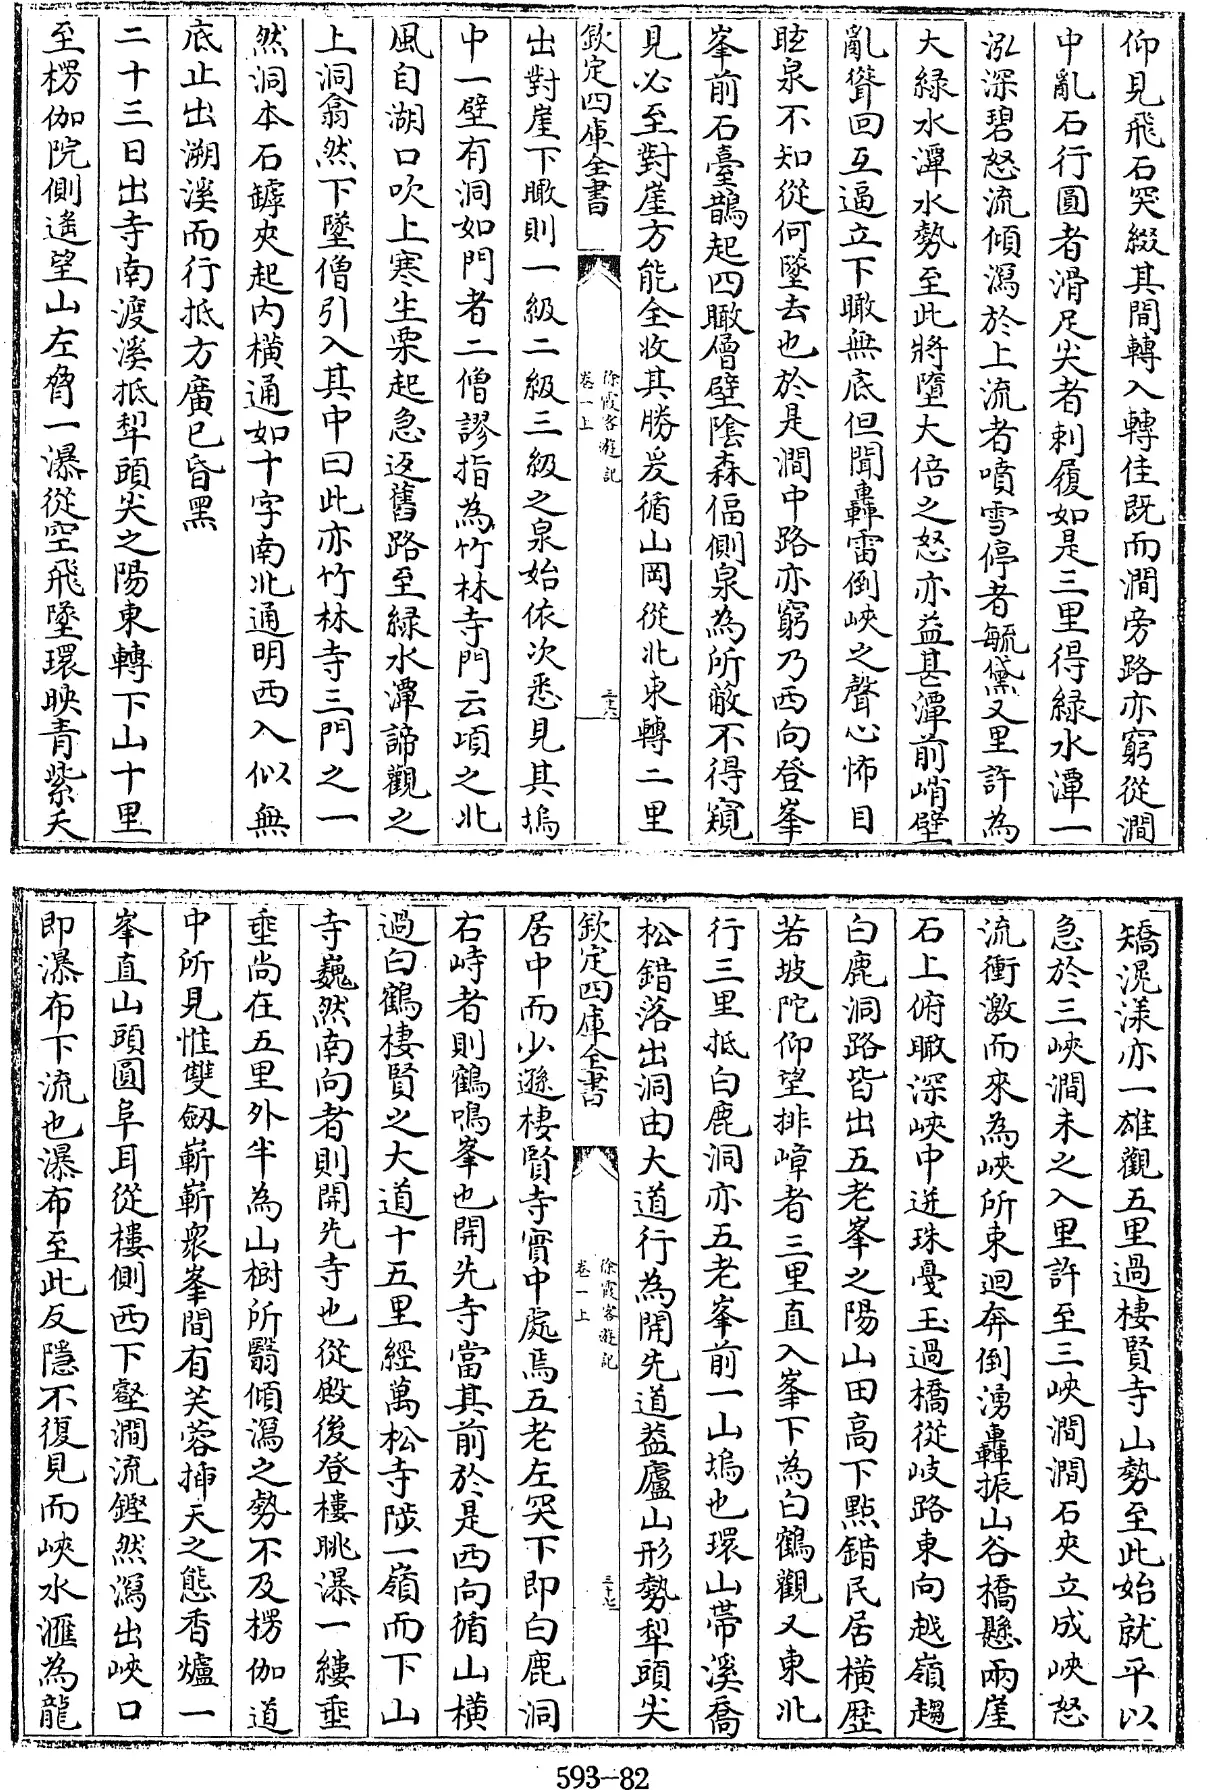 仰見飛石突綴其間轉入轉佳既而澗旁路亦窮從澗
中亂石行圓者滑足尖者刺履如是三里得緑水潭一
泓深碧怒流傾瀉於上流者噴雪停者毓黛又里許為
大緑水潭水勢至此將墮大倍之怒亦益甚潭前峭壁
亂聳回互逼立下瞰無底但聞轟雷倒峽之聲心怖目
眩泉不知從何墜去也於是澗中路亦窮乃西向登峯
峯前石臺鵲起四瞰僧壁陰森偪側泉為所蔽不得窺
見必至對崖方能全收其勝爰循山岡從北東轉二里
欽定四庫全書
徐霞客遊記
卷一上
三十六
出對崖下瞰則一級二級三級之泉始依次悉見其塢
中一壁有洞如門者二僧謬指為竹林寺門云頃之北
風自湖口吹上寒生粟起急返舊路至緑水潭諦觀之
上洞翕然下墜僧引入其中曰此亦竹林寺三門之一
然洞本石罅夾起内横通如十字南北通明西入似無
底止出溯溪而行抵方廣已昏黑
二十三日出寺南渡溪抵犁頭尖之陽東轉下山十里
至楞伽院側遙望山左脅一瀑從空飛墜環映青紫夭
矯滉漾亦一雄觀五里過棲賢寺山勢至此始就平以
急於三峽澗未之入里許至三峽澗澗石夾立成峽怒
流衝激而來為峽所束迴奔倒湧轟振山谷橋懸兩崖
石上俯瞰深峽中迸珠戛玉過橋從岐路東向越嶺趨
白鹿洞路皆出五老峯之陽山田高下點錯民居横歴
若坡陀仰望排嶂者三里直入峯下為白鶴觀又東北
行三里抵白鹿洞亦五老峯前一山塢也環山帶溪喬
松錯落出洞由大道行為開先道葢廬山形勢犁頭尖
欽定四庫全書
徐霞客遊記
卷一上
三十七
居中而少遜棲賢寺實中處焉五老左突下即白鹿洞
右峙者則鶴鳴峯也開先寺當其前於是西向循山横
過白鶴棲賢之大道十五里經萬松寺陟一嶺而下山
寺巍然南向者則開先寺也從殿後登樓眺瀑一縷垂
垂尚在五里外半為山樹所翳傾瀉之勢不及楞伽道
中所見惟雙劔嶄嶄衆峯間有芙蓉挿天之態香爐一
峯直山頭圓阜耳從樓側西下壑澗流鏗然瀉出峽口
即瀑布下流也瀑布至此反隱不復見而峽水滙為龍
593-82